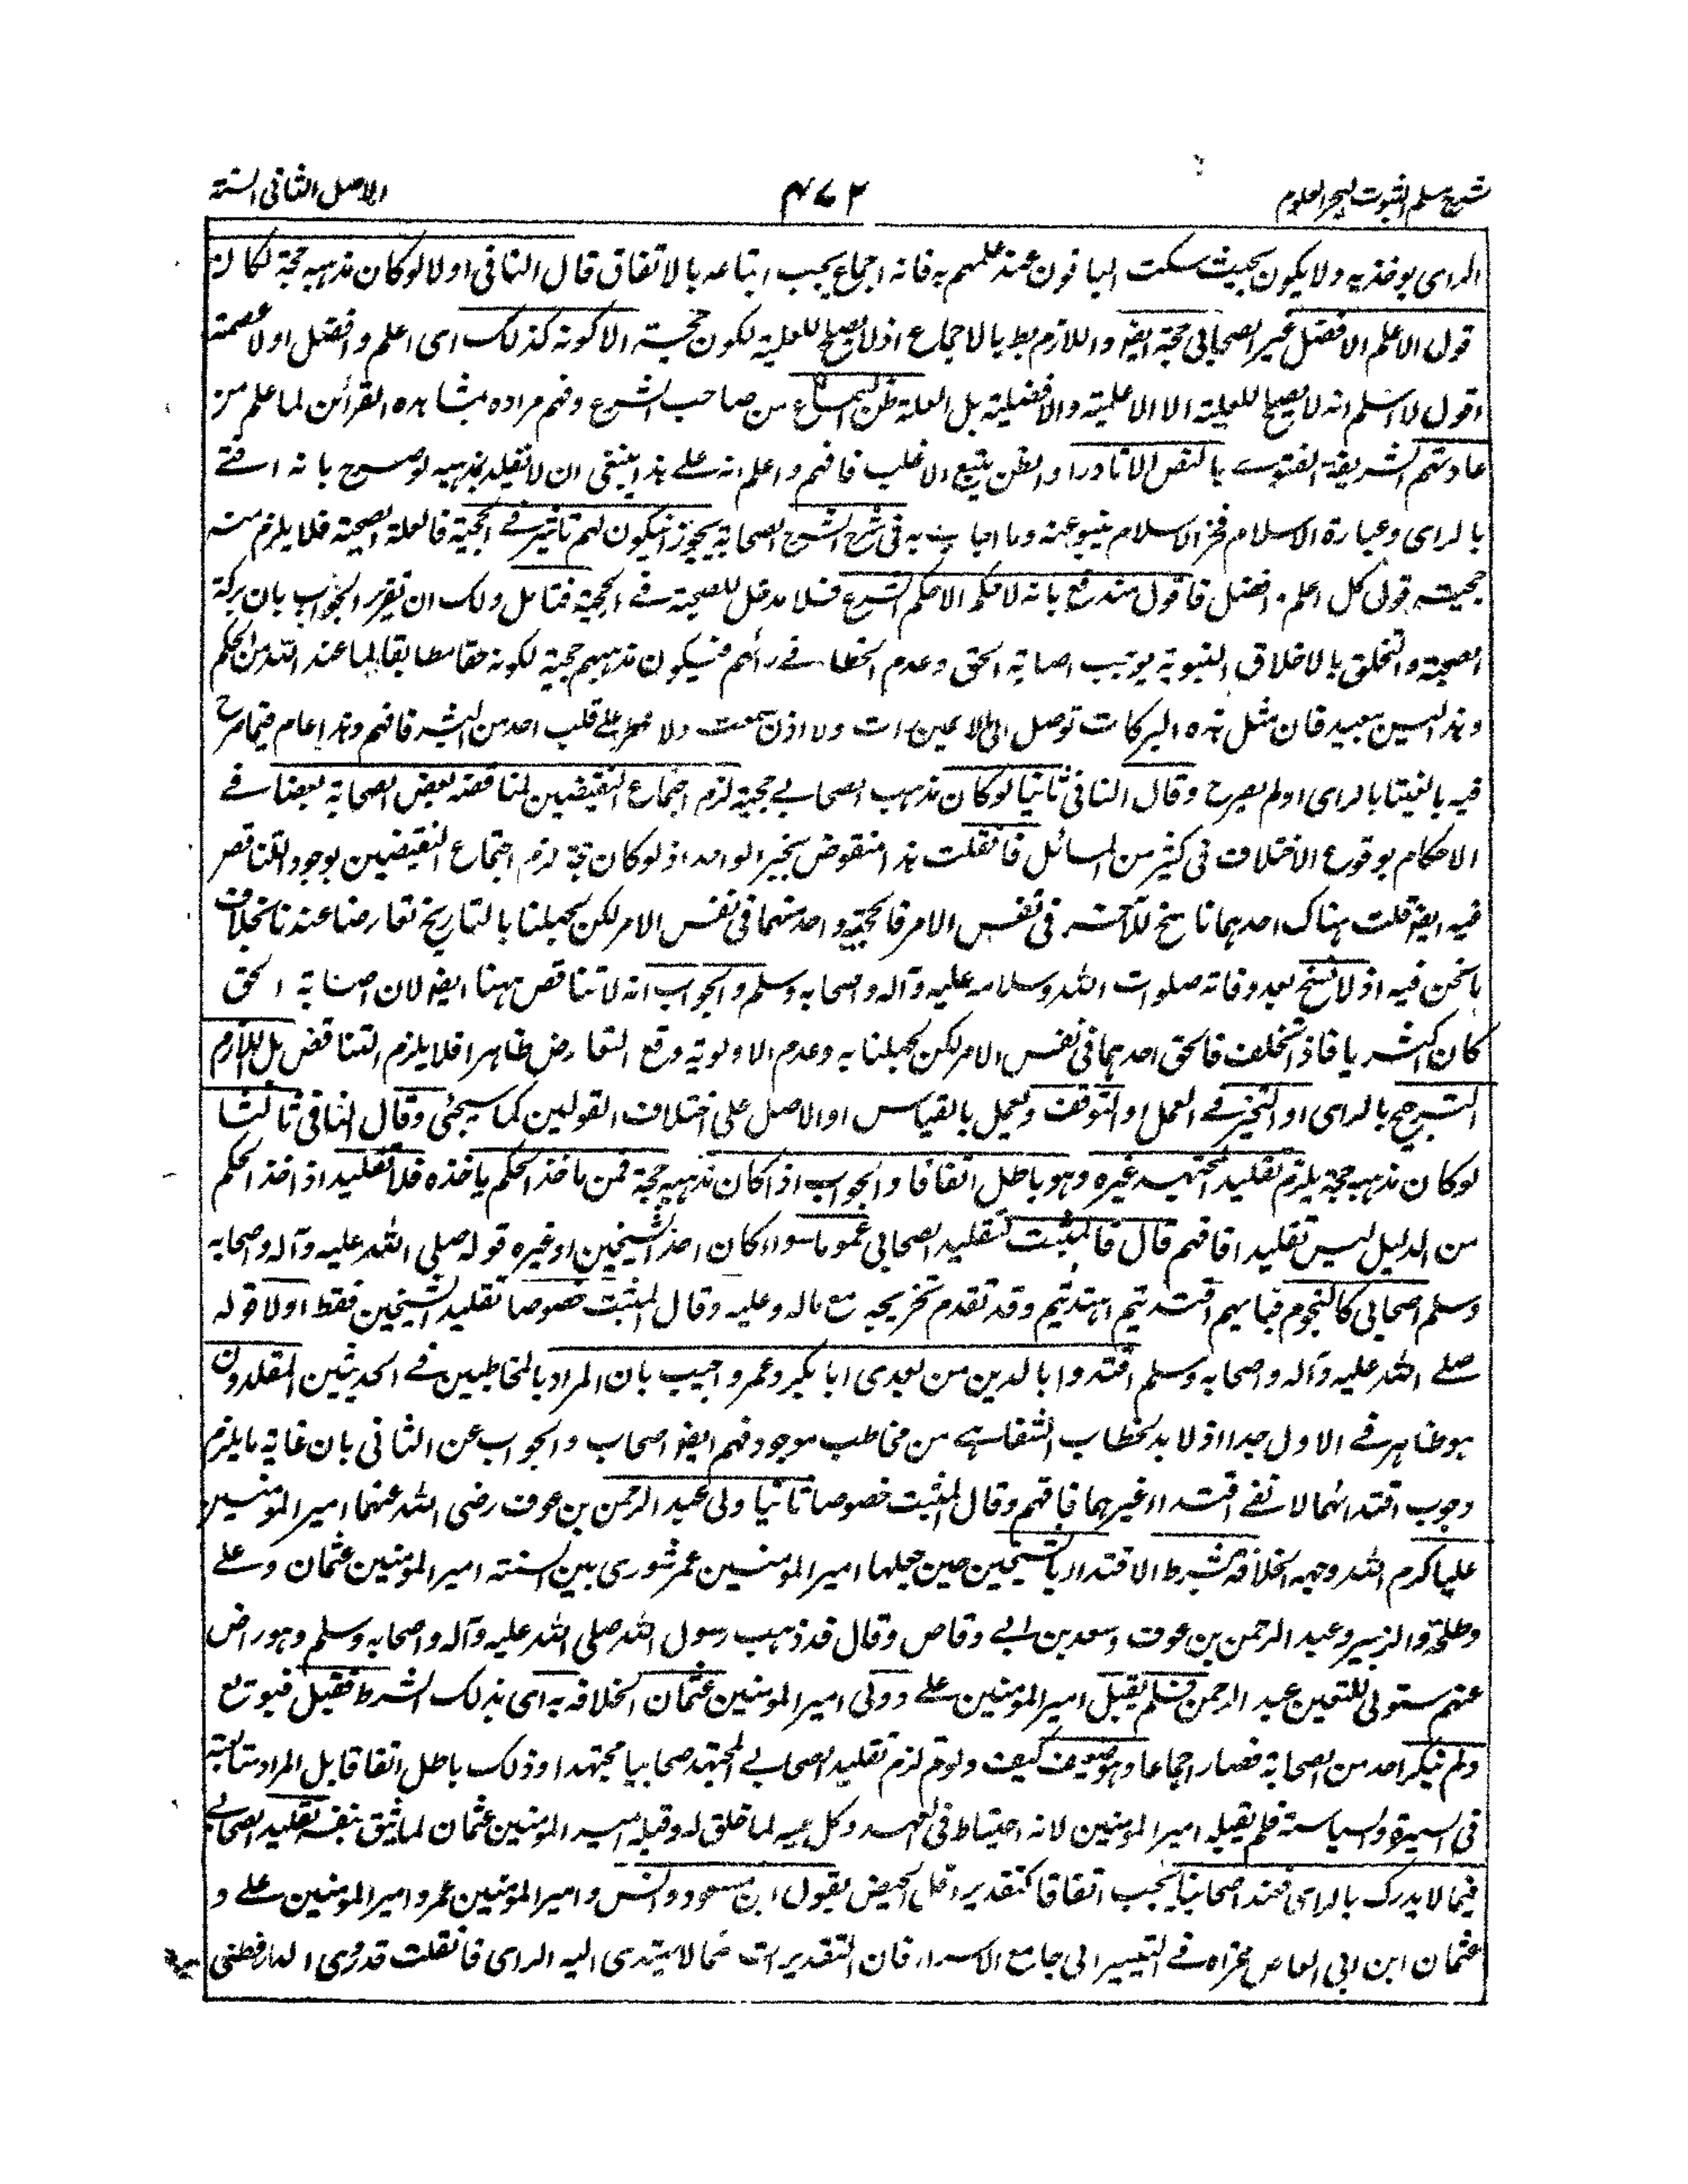 شرح مسلم الثبوت لبحر العلوم
۴۷۲
الاصل الثانی السنة
الرای یوخذ به ولا یکون بحیث سکت الباقون عند علمهم به فانه اجماع یجب اتباعه بالاتفاق قال النافی اولا لو کان مذهبه حجة لکان
قول الاعلم الافضل غیر الصحابی حجة ایضا واللازم بط بالاجماع اذ لا یصلح للعلیة لکون حجیته الا کونه کذلک ای اعلم وافضل اولا عصمة
اقول لا اسلم انه لا یصلح للعلیة الا الاعلمیة والافضلیة بل العلة ظن السماع من صاحب الشرع وفهم مراده بمشاهده القرائن لما علم من
عادتهم الشریفة الفتوی بالنص الا نادرا والظن یتبع الاغلب فافهم واعلم انه علی هذا ینبغی ان لا تقلید بمذهبه لو صرح بانه افتی
بالرای وعبارة الاسلام فخر الاسلام ینبو عنه وما اجاب به فی شرح الشرح الصحابة یجوز ان یکون لهم تاثیر فی الحجیة فالعلة الصحبة فلا یلزم منه
حجیته قول کل اعلم افضل فاقول مندفع بانه لا حکم الا حکم الشرع فلا مدخل للصحبة فی الحجیة فتامل ولک ان تقرر الجواب بان برکة
الصحبة والتخلق بالاخلاق النبویة یوجب اصابة الحق وعدم الخطا فی رائهم فیکون مذهبهم حجیة لکونه حقا مطابقا لما عند الله من الحکم
وهذا لیس ببعید فان مثل هذه البرکات توصل الی ما لا عین رات ولا اذن سمعت ولا خطر علی قلب احد من البشر فافهم وهذا عام فیما صرح
فیه بالفتیا بالرای او لم یصرح وقال النافی ثانیا لو کان مذهب الصحابی حجیة لزم اجتماع النقیضین لمناقضة بعض الصحابة بعضا فی
الاحکام بوقوع الاختلاف فی کثیر من المسائل فان قلت هذا منقوض بخبر الواحد اذ لو کان حجة لزم اجتماع النقیضین بوجود التناقض
فیه ایضا قلت هناک احدهما ناسخ للآخر فی نفس الامر فالحجة واحد منهما فی نفس الامر لکن بجهلنا بالتاریخ تعارضا عندنا بخلاف
ما نحن فیه اذ لا نسخ بعد وفاته صلوات الله وسلامه علیه وآله واصحابه وسلم والجواب انه لا تناقض ههنا ایضا لان اصابة الحق
کان اکثریا فاذا تخلف فالحق احدهما فی نفس الامر لکن بجهلنا به وعدم الاولویة وقع التعارض ظاهرا فلا یلزم التناقض بل اللازم
الترجیح بالرای او التخیر فی العمل او التوقف والعمل بالقیاس او الاصل علی اختلاف القولین کما سیجئ وقال النافی ثالثا
لو کان مذهبه حجة یلزم تقلید المجتهد غیره وهو باطل اتفاقا والجواب اذا کان مذهبه حجة فمن ماخذ الحکم یاخذه فلا تقلید اذ اخذ الحکم
من الدلیل لیس تقلیدا فافهم قال فالمثبت لتقلید الصحابی عموما سواء کان احد الشیخین او غیره قوله صلی الله علیه وآله واصحابه
وسلم اصحابی کالنجوم فبایهم اقتدیتم اهتدیتم وقد تقدم تخریجه مع ماله وعلیه وقال المثبت خصوصا تقلید الشیخین فقط اولا قوله
صلی الله علیه وآله واصحابه وسلم اقتدوا بالذین من بعدی ابا بکر وعمر واجیب بان المراد بالمخاطبین فی الحدیثین المقلدون
هو ظاهر فی الاول جدا اذ لا بد لخطاب الشفاهی من مخاطب موجود فهم ایضا اصحاب والجواب عن الثانی بان غایة ما یلزم
وجوب اقتدائهما لا نفی اقتداء غیرهما فافهم وقال المثبت خصوصا ثانیا ولی عبد الرحمن بن عوف رضی الله عنهما امیر المومنین
علیا کرم الله وجهه الخلافة بشرط الاقتداء بالشیخین حین جعلها امیر المومنین عمر شوری بین الستة امیر المومنین عثمان وعلی
وطلحة والزبیر وعبد الرحمن بن عوف وسعد بن ابی وقاص وقال قد ذهب رسول الله صلی الله علیه وآله واصحابه وسلم وهو راض
عنهم ستولی للتعین عبد الرحمن فلم یقبل امیر المومنین علی وولی امیر المومنین عثمان الخلافة به ای بذلک الشرط فقبل فبویع
ولم ینکر احد من الصحابة فصار اجماعا وهو ضعیف کیف ولو تم لزم تقلید الصحابی المجتهد صحابیا مجتهدا وذلک باطل اتفاقا بل المراد متابعته
فی السیرة والسیاسة فلم یقبله امیر المومنین لانه احتیاط فی العهد وکل میسر لما خلق له وقبله امیر المومنین عثمان لما یثق بنفسه تقلید الصحابی
فیما لا یدرک بالرای فعند اصحابنا یجب اتفاقا کتقدیر اقل الحیض بقول ابن مسعود وانس وامیر المومنین عمر وامیر المومنین علی و
عثمان ابن ابی العاص عزاه فی التیسیر الی جامع الاسرار فان التقدیرات مما لا یهتدی الیه الرای فان قلت قد روی الدارقطنی